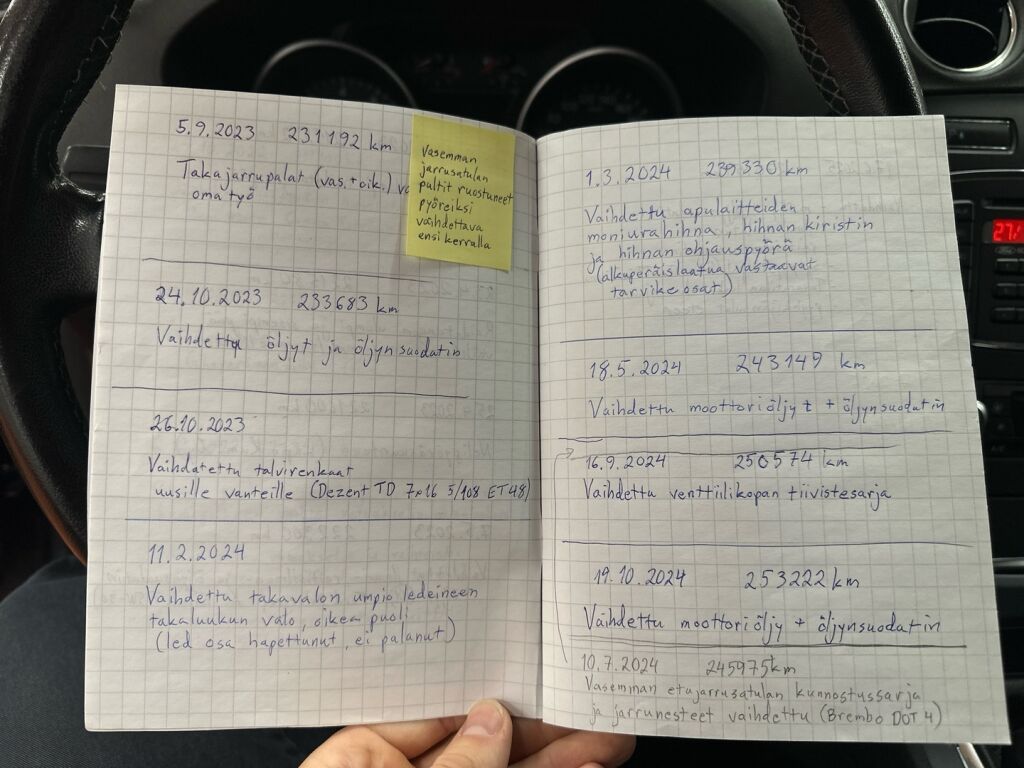 5.9.2023 231192 km
Takajarrupalat (vas. + oik.)
omatyö
Vasemman
jarrusatulan
pultit ruostuneet
pyöreiksi
vaihdettava
ensi kerralla
24.10.2023 233683 km
Vaihdettu öljyt ja öljynsuodatin
26.10.2023
Vaihdatettu talvirenkaat
uusille vanteille (Dezent TD 7x16 5/108 ET48)
11.2.2024
Vaihdettu takavalon umpio ledeineen
takaluukun valo, oikea puoli
(led osa hapettunut, ei palanut)
1.3.2024 239330 km
Vaihdettu apulaitteiden
moniurahihna, hihnan kiristin
ja hihnan ohjauspyörä
(alkuperäislaatua vastaavat
tarvikeosat)
18.5.2024 243149 km
Vaihdettu moottoriöljyt + öljynsuodatin
16.9.2024 250574 km
Vaihdettu venttiilikopan tiivistesarja
19.10.2024 253222 km
Vaihdettu moottoriöljy + öljynsuodatin
10.7.2024 245975 km
Vasemman etujarrusatulan kunnostussarja
ja jarrunesteet vaihdettu (Brembo DOT 4)